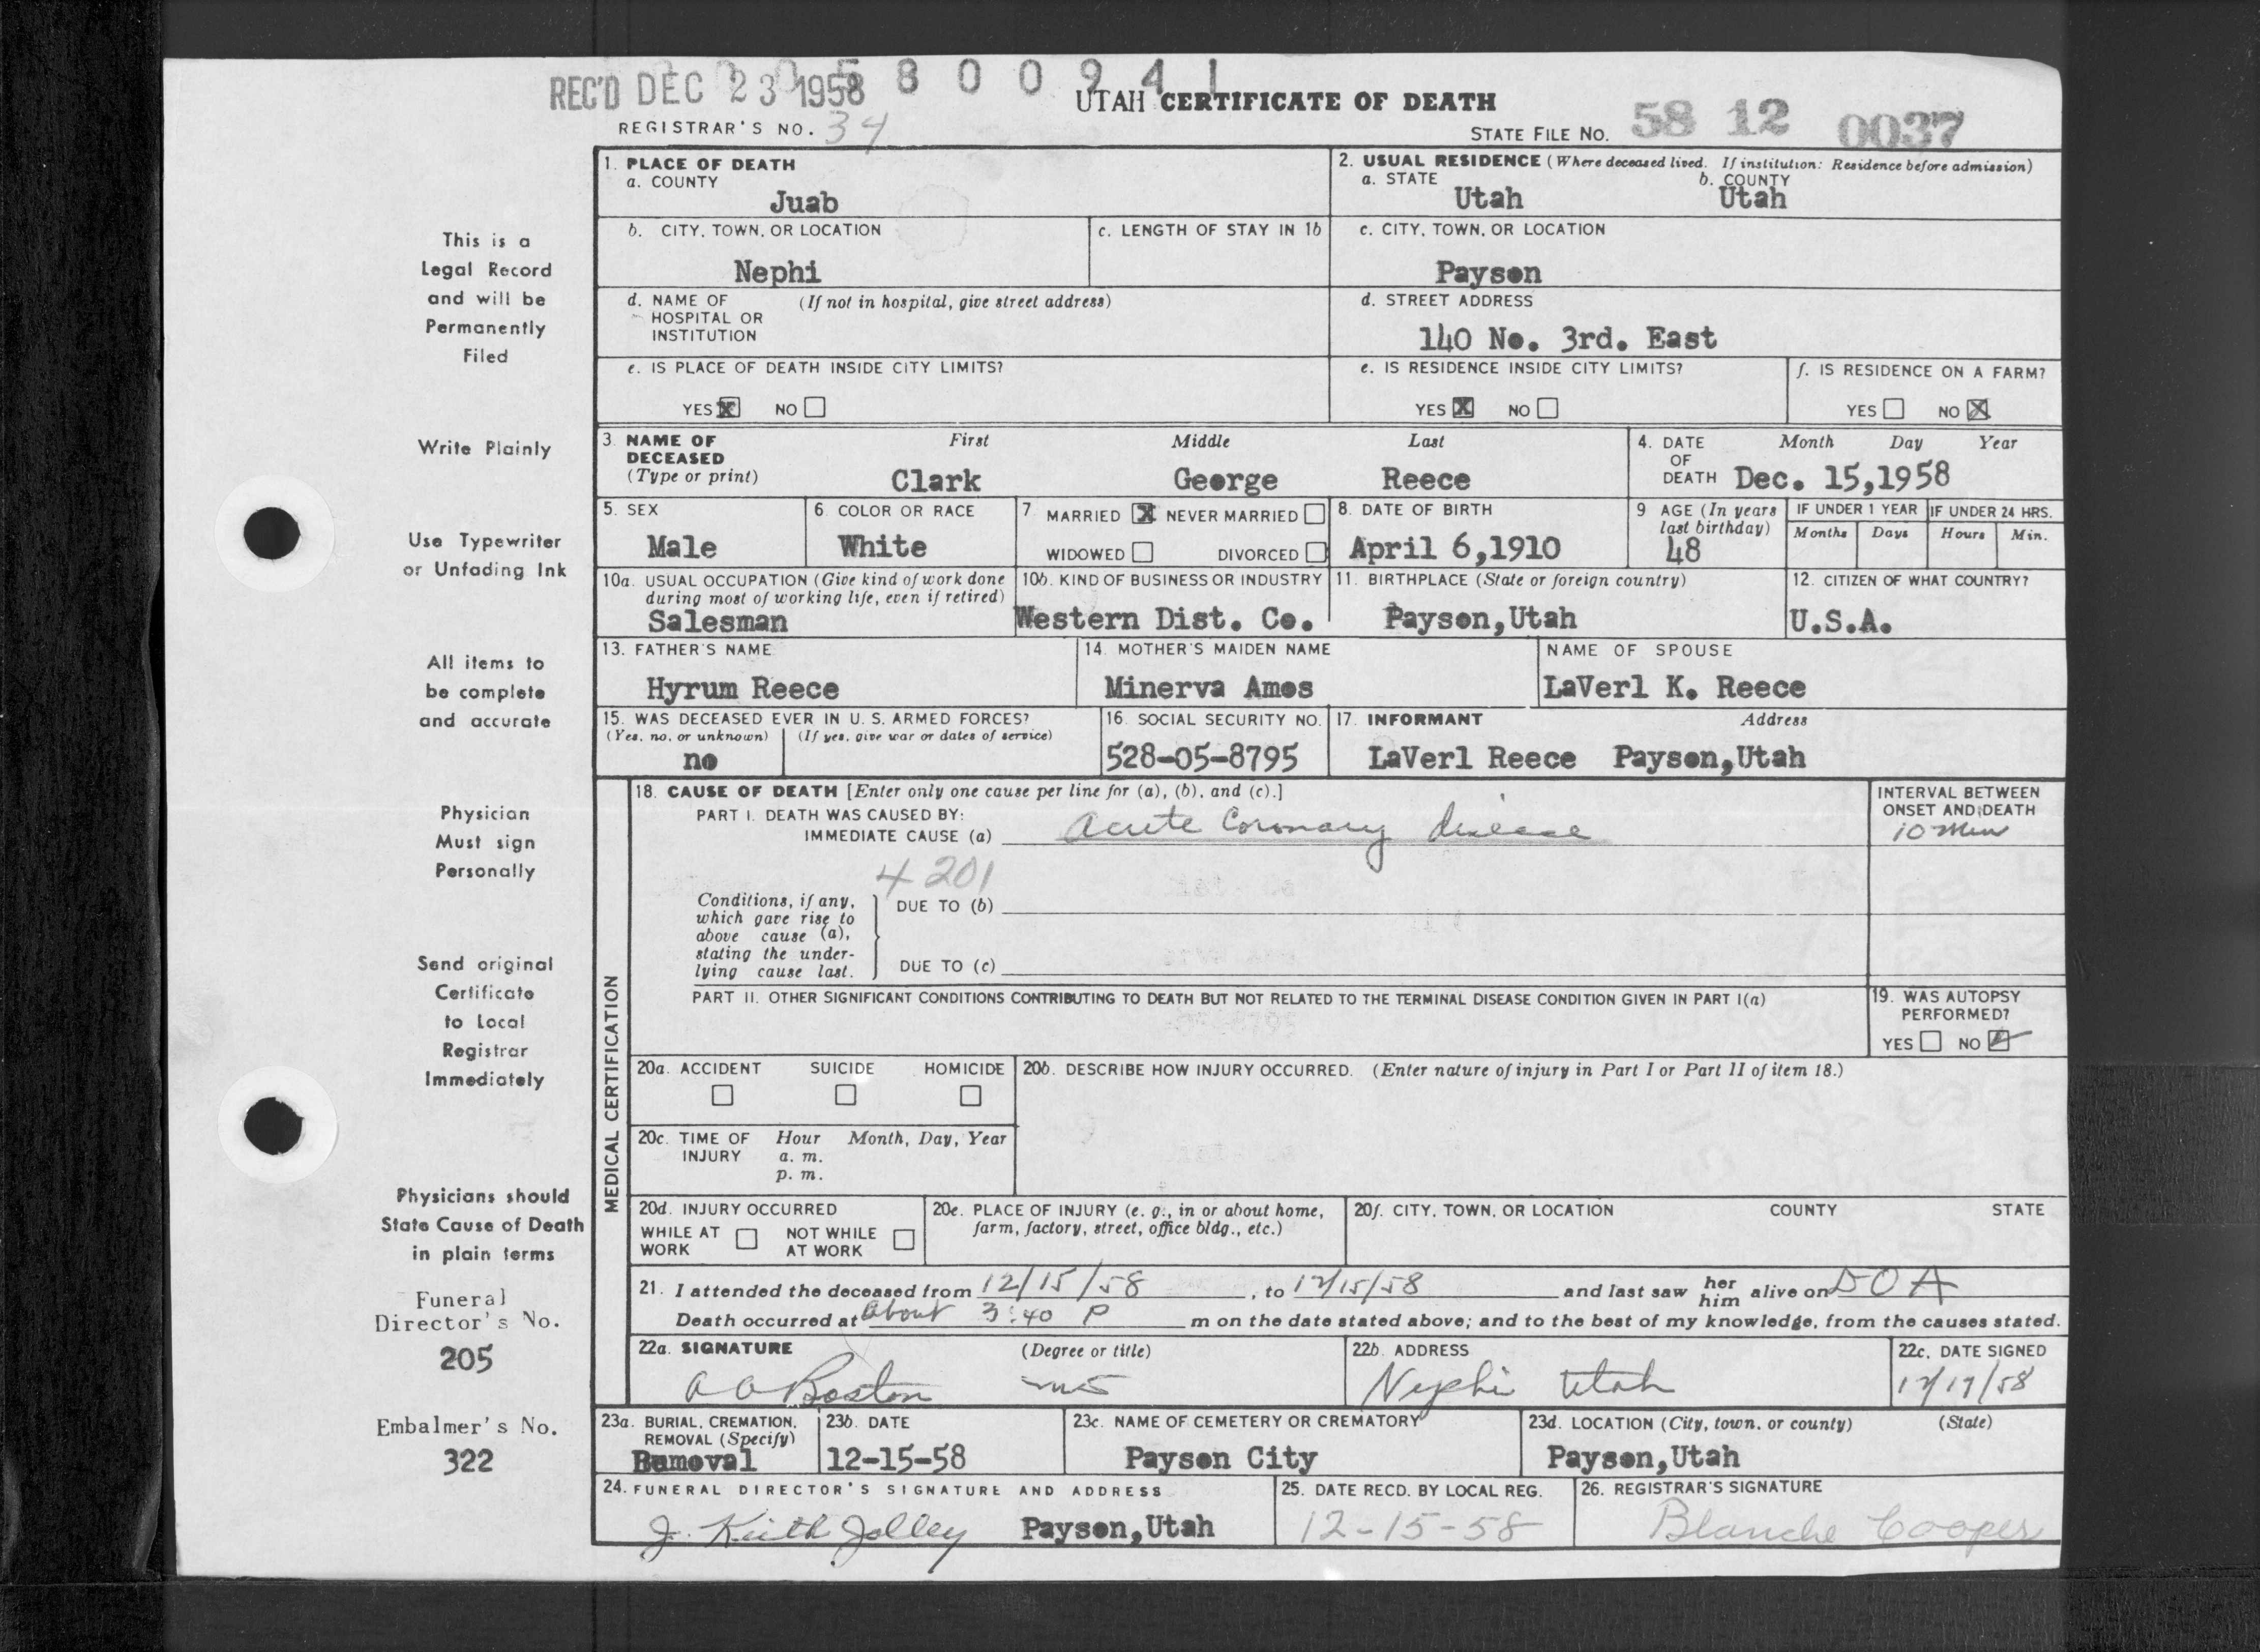 REC'D DEC 23 1958 5 8 0 0 9 4 1
UTAH CERTIFICATE OF DEATH
REGISTRAR'S NO. 34
STATE FILE NO. 58 12 0037
1. PLACE OF DEATH
a. COUNTY
Juab
2. USUAL RESIDENCE (Where deceased lived. If institution: Residence before admission)
a. STATE b. COUNTY
Utah Utah
b. CITY, TOWN, OR LOCATION
Nephi
c. LENGTH OF STAY IN 1b
c. CITY, TOWN, OR LOCATION
Payson
d. NAME OF (If not in hospital, give street address)
HOSPITAL OR
INSTITUTION
d. STREET ADDRESS
140 No. 3rd. East
e. IS PLACE OF DEATH INSIDE CITY LIMITS?
YES X NO
e. IS RESIDENCE INSIDE CITY LIMITS?
YES X NO
f. IS RESIDENCE ON A FARM?
YES NO X
3. NAME OF DECEASED (Type or print)
First Middle Last
Clark George Reece
4. DATE OF DEATH
Month Day Year
Dec. 15,1958
5. SEX
Male
6. COLOR OR RACE
White
7. MARRIED X NEVER MARRIED
WIDOWED DIVORCED
8. DATE OF BIRTH
April 6,1910
9 AGE (In years last birthday)
48
IF UNDER 1 YEAR
Months Days
IF UNDER 24 HRS.
Hours Min.
10a. USUAL OCCUPATION (Give kind of work done
during most of working life, even if retired)
Salesman
10b. KIND OF BUSINESS OR INDUSTRY
Western Dist. Co.
11. BIRTHPLACE (State or foreign country)
Payson,Utah
12. CITIZEN OF WHAT COUNTRY?
U.S.A.
13. FATHER'S NAME
Hyrum Reece
14. MOTHER'S MAIDEN NAME
Minerva Amos
NAME OF SPOUSE
LaVerl K. Reece
15. WAS DECEASED EVER IN U. S. ARMED FORCES?
(Yes, no, or unknown) (If yes, give war or dates of service)
no
16. SOCIAL SECURITY NO.
528-05-8795
17. INFORMANT Address
LaVerl Reece Payson,Utah
MEDICAL CERTIFICATION
18. CAUSE OF DEATH [Enter only one cause per line for (a), (b), and (c).]
PART I. DEATH WAS CAUSED BY:
IMMEDIATE CAUSE (a) Acute Coronary disease
INTERVAL BETWEEN
ONSET AND DEATH
10 Min
4201
Conditions, if any,
which gave rise to
above cause (a),
stating the under-
lying cause last.
DUE TO (b)
DUE TO (c)
PART II. OTHER SIGNIFICANT CONDITIONS CONTRIBUTING TO DEATH BUT NOT RELATED TO THE TERMINAL DISEASE CONDITION GIVEN IN PART I(a)
19. WAS AUTOPSY
PERFORMED?
YES NO
20a. ACCIDENT SUICIDE HOMICIDE
20b. DESCRIBE HOW INJURY OCCURRED. (Enter nature of injury in Part I or Part II of item 18.)
20c. TIME OF INJURY
Hour Month, Day, Year
a. m.
p. m.
20d. INJURY OCCURRED
WHILE AT WORK NOT WHILE AT WORK
20e. PLACE OF INJURY (e. g., in or about home,
farm, factory, street, office bldg., etc.)
20f. CITY, TOWN, OR LOCATION COUNTY STATE
21. I attended the deceased from 12/15/58, to 12/15/58 and last saw her him alive on DOA
Death occurred at about 3:40 P m on the date stated above; and to the best of my knowledge, from the causes stated.
22a. SIGNATURE (Degree or title)
A O Boston MD
22b. ADDRESS
Nephi Utah
22c. DATE SIGNED
12/17/58
23a. BURIAL, CREMATION,
REMOVAL (Specify)
Removal
23b. DATE
12-15-58
23c. NAME OF CEMETERY OR CREMATORY
Payson City
23d. LOCATION (City, town, or county) (State)
Payson,Utah
24. FUNERAL DIRECTOR'S SIGNATURE AND ADDRESS
J. Keith Jolley Payson,Utah
25. DATE RECD. BY LOCAL REG.
12-15-58
26. REGISTRAR'S SIGNATURE
Blanche Cooper
This is a
Legal Record
and will be
Permanently
Filed
Write Plainly
Use Typewriter
or Unfading Ink
All items to
be complete
and accurate
Physician
Must sign
Personally
Send original
Certificate
to Local
Registrar
Immediately
Physicians should
State Cause of Death
in plain terms
Funeral
Director's No.
205
Embalmer's No.
322